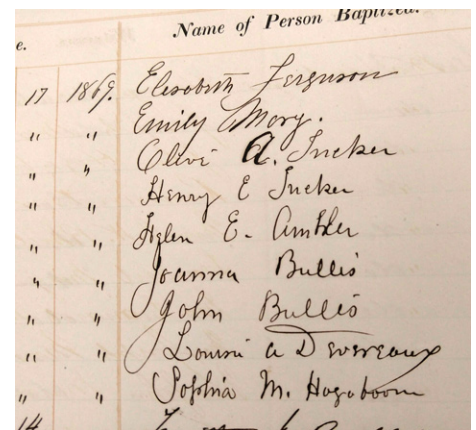 e. Name of Person Baptized.
17 1869. Elesabeth Ferguson
" " Emily Mory.
" " Olive A. Tucker
" " Henry E Tucker
" " Helen E. Ambler
" " Joanna Bullis
" " John Bullis
" " a Devereaux
" " Sophia M. Hagaboom
14